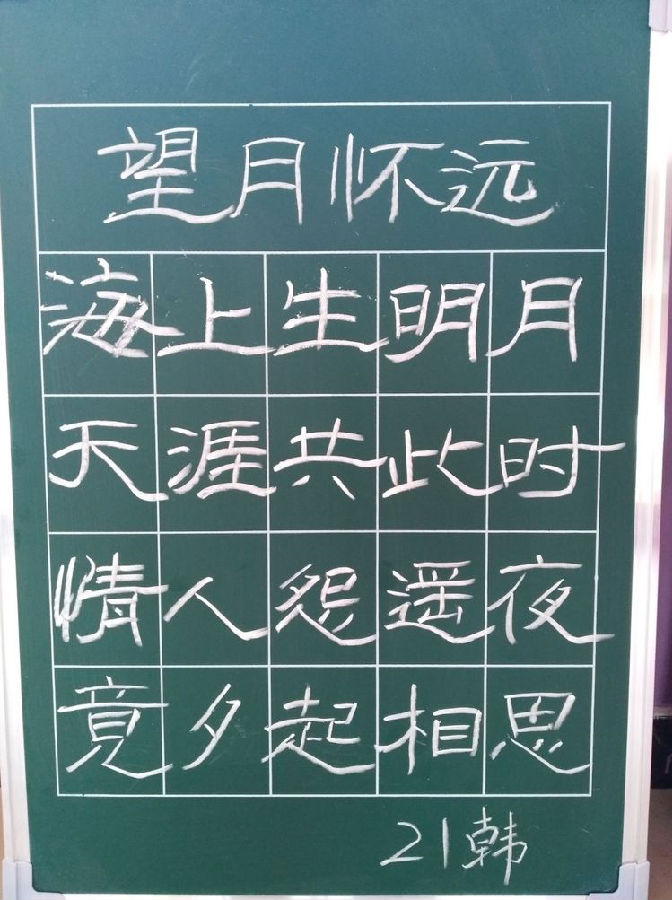 望月怀远
海上生明月
天涯共此时
情人怨遥夜
竟夕起相思
21韩